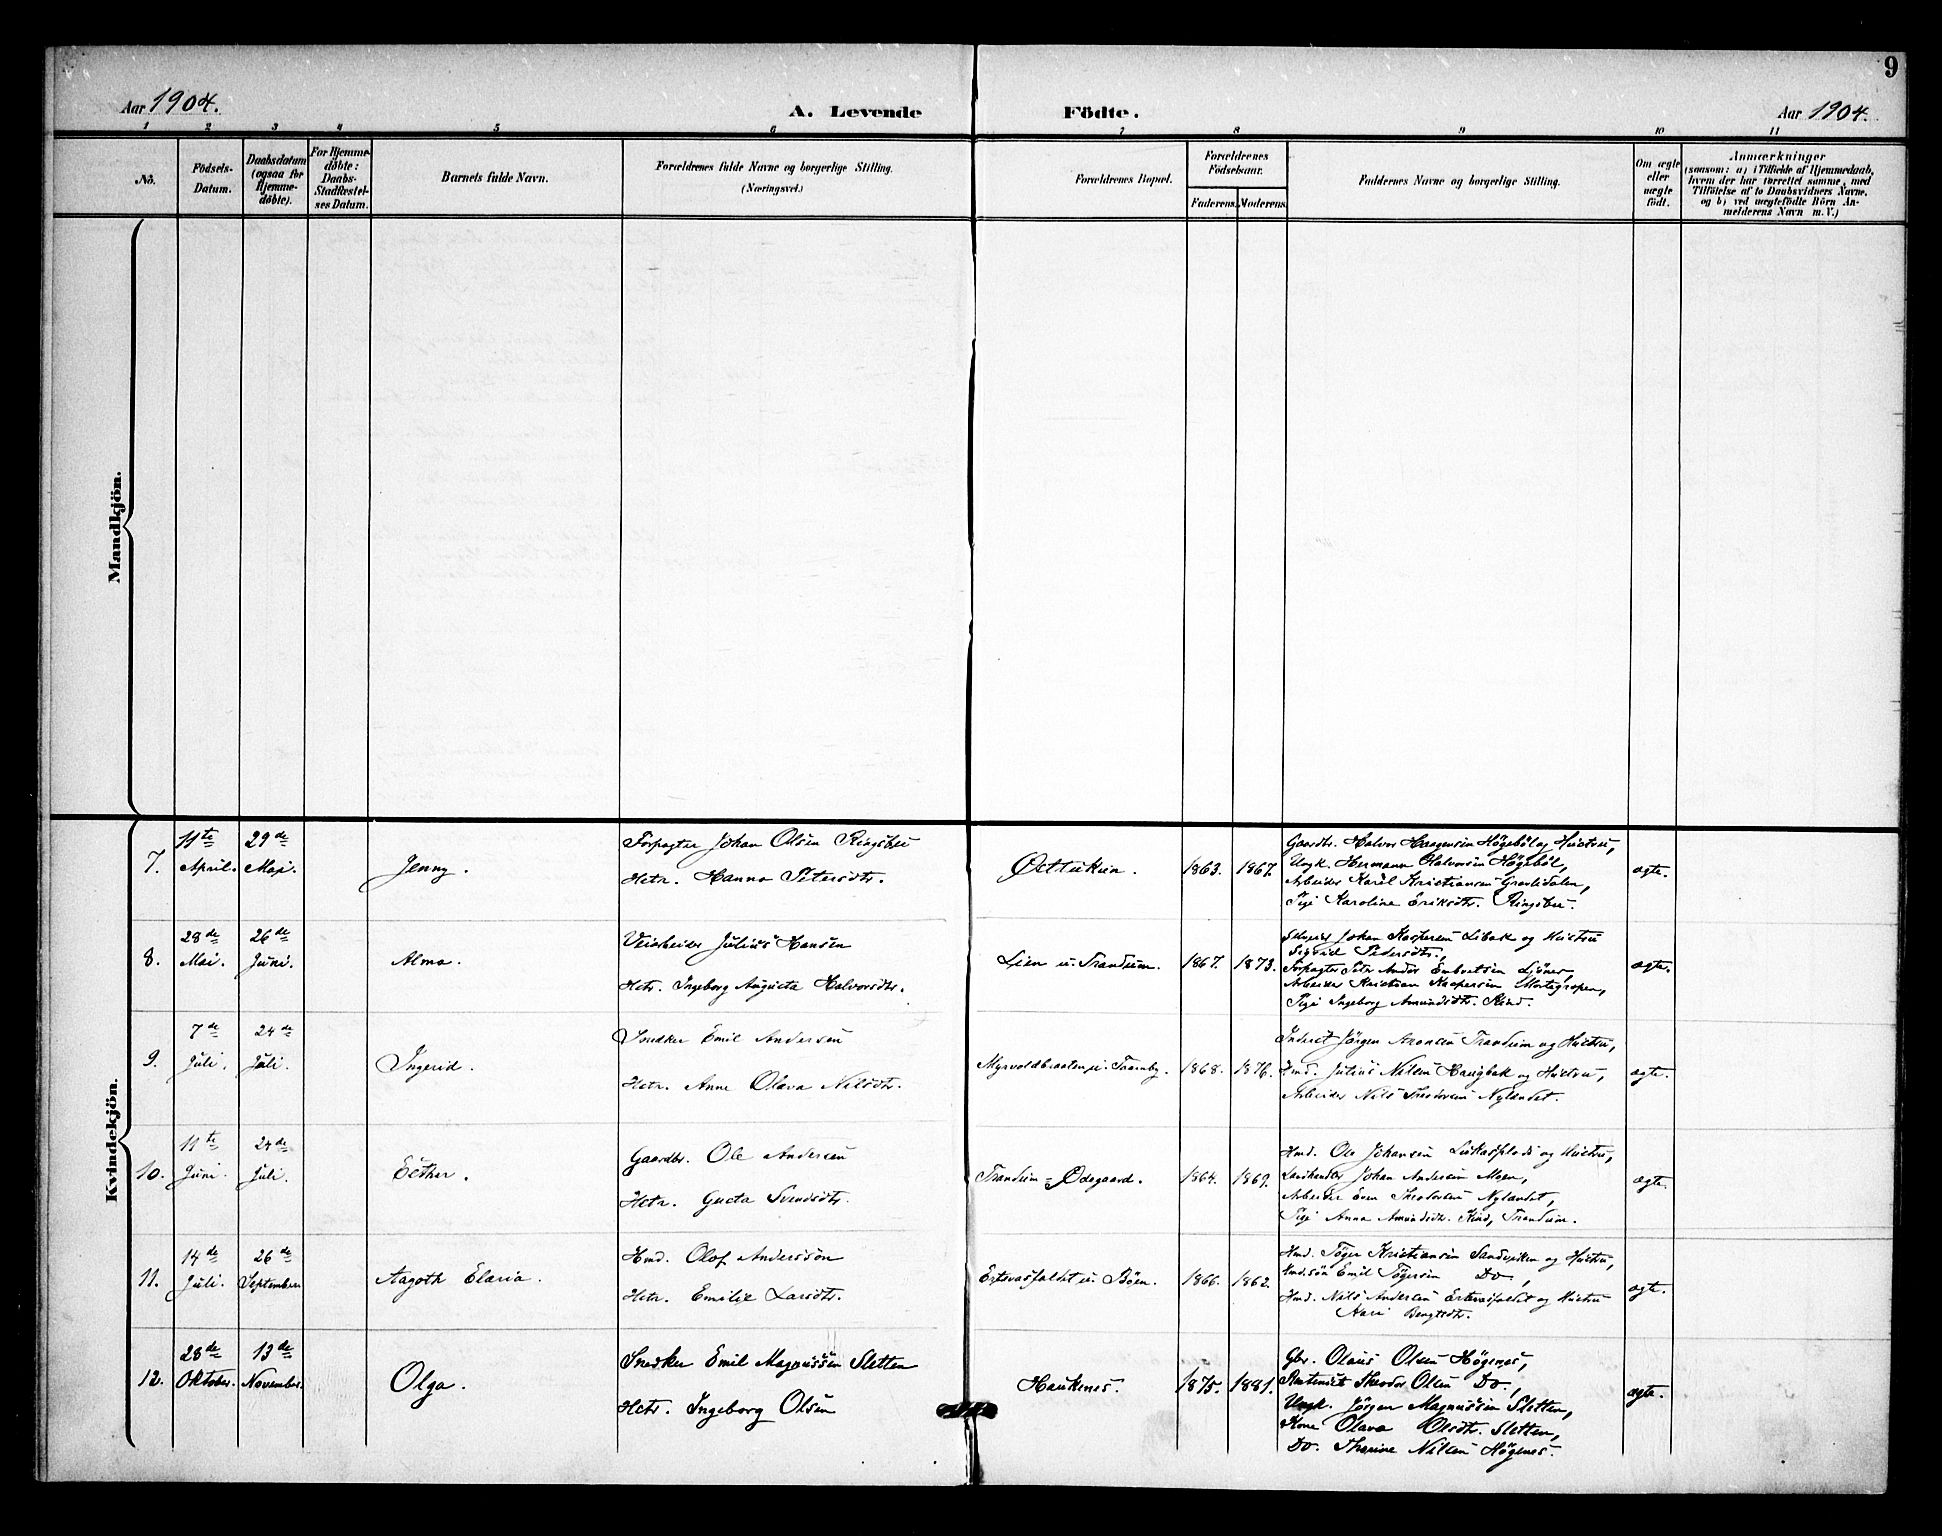 9
Aar 1904.
A. Levende Födte.
Aar 1904.
1 2 3 4 5 6 7 8 9 10 11
No.
Födsels-Datum.
Daabsdatum (ogsaa for Hjemme-døbte).
For Hjemme-døbte: Daabs-Stadfæstel-ses Datum.
Barnets fulde Navn.
Forældrenes fulde Navne og borgerlige Stilling.
(Næringsvei.)
Forældrenes Bopæl.
Forældrenes Fødselsaar.
Faderens. Moderens.
Faddernes Navne og borgerlige Stilling.
Om ægte eller uægte født.
Anmærkninger
(saasom: a) i Tilfælde af Hjemmedaab, hvem der har forrettet samme, med Tilføielse af to Daabsvidners Navne, og b) ved uægtefödte Börn Anmelderens Navn m. V.)
Mandkjön.
Kvindekjön.
7. 11te April. 29de Mai. Jenny.
Forpagter Johan Olsen Ringsbu
Hstr. Hanna Petersdtr.
1863. 1867.
Gaardbr. Halvor Haagensen Högeböl og Hustru,
Ungk. Hermann Halvorsen Högeböl,
Arbeider Karel Kristiansen
Pige Karoline Eriksdtr. Ringsbu.
ægte.
8. 28de Mai. 26de Juni. Alma.
Veiarbeider Julius Hansen
Hstr. Ingeborg Augusta Halvorsdtr.
Lien u. Trandum. 1867. 1873.
Johan Kaspersen Libak og Hustru
Sigrid Pedersdtr.,
Forpagter Petr Anders Embretsen
Arbeider Kristian Kaspersen
Pige Ingeborg Amundsdtr. Kind.
ægte.
9. 7de Juli. 24de Juli. Ingerid.
Snedker Emil Andersen
Hstr. Anne Olava Nilsdtr.
Myrvoldbraaten u. Tramby. 1868. 1876.
Inderst Jörgen Aronsen Trandum og Hustru,
Hmd. Julius Nilsen Haugbak og Hustru,
Arbeider Nils Theodorsen Nylandet.
ægte.
10. 11te Juni. 24de Juli. Esther.
Gaardbr. Ole Andersen
Hstr. Gusta Svendsdtr.
Trandum-Ødegaard. 1864. 1869.
Hmd. Ole Johansen og Hustru,
Landhandler Johan Andersen Moen,
Arbeider Even Theodorsen Nylandet,
Pige Anna Amundsdtr. Kind, Trandum.
ægte.
11. 14de Juli. 26de September. Aagoth Elaria.
Hmd. Olof Anderssön
Hstr. Emilie Larsdtr.
u. Böen. 1866. 1862.
Hmd. Töger Kristiansen Sandviken og Hustru,
Hmdsön Emil Tögersen Do,
Hmd. Nils Andersen og Hustru
Kari Bengtsdtr.
ægte.
12. 28de Oktober. 13de November. Olga.
Snedker Emil Magnussen Sletten
Hstr. Ingeborg Olsen
Haukenes. 1875. 1881.
Gbr. Olaus Olsen Högenes,
Theodor Olsen Do.,
Ungk. Jörgen Magnussen Sletten,
Kone Olava Olsdtr. Sletten,
Do. Thorine Nilsen Högenes.
ægte.